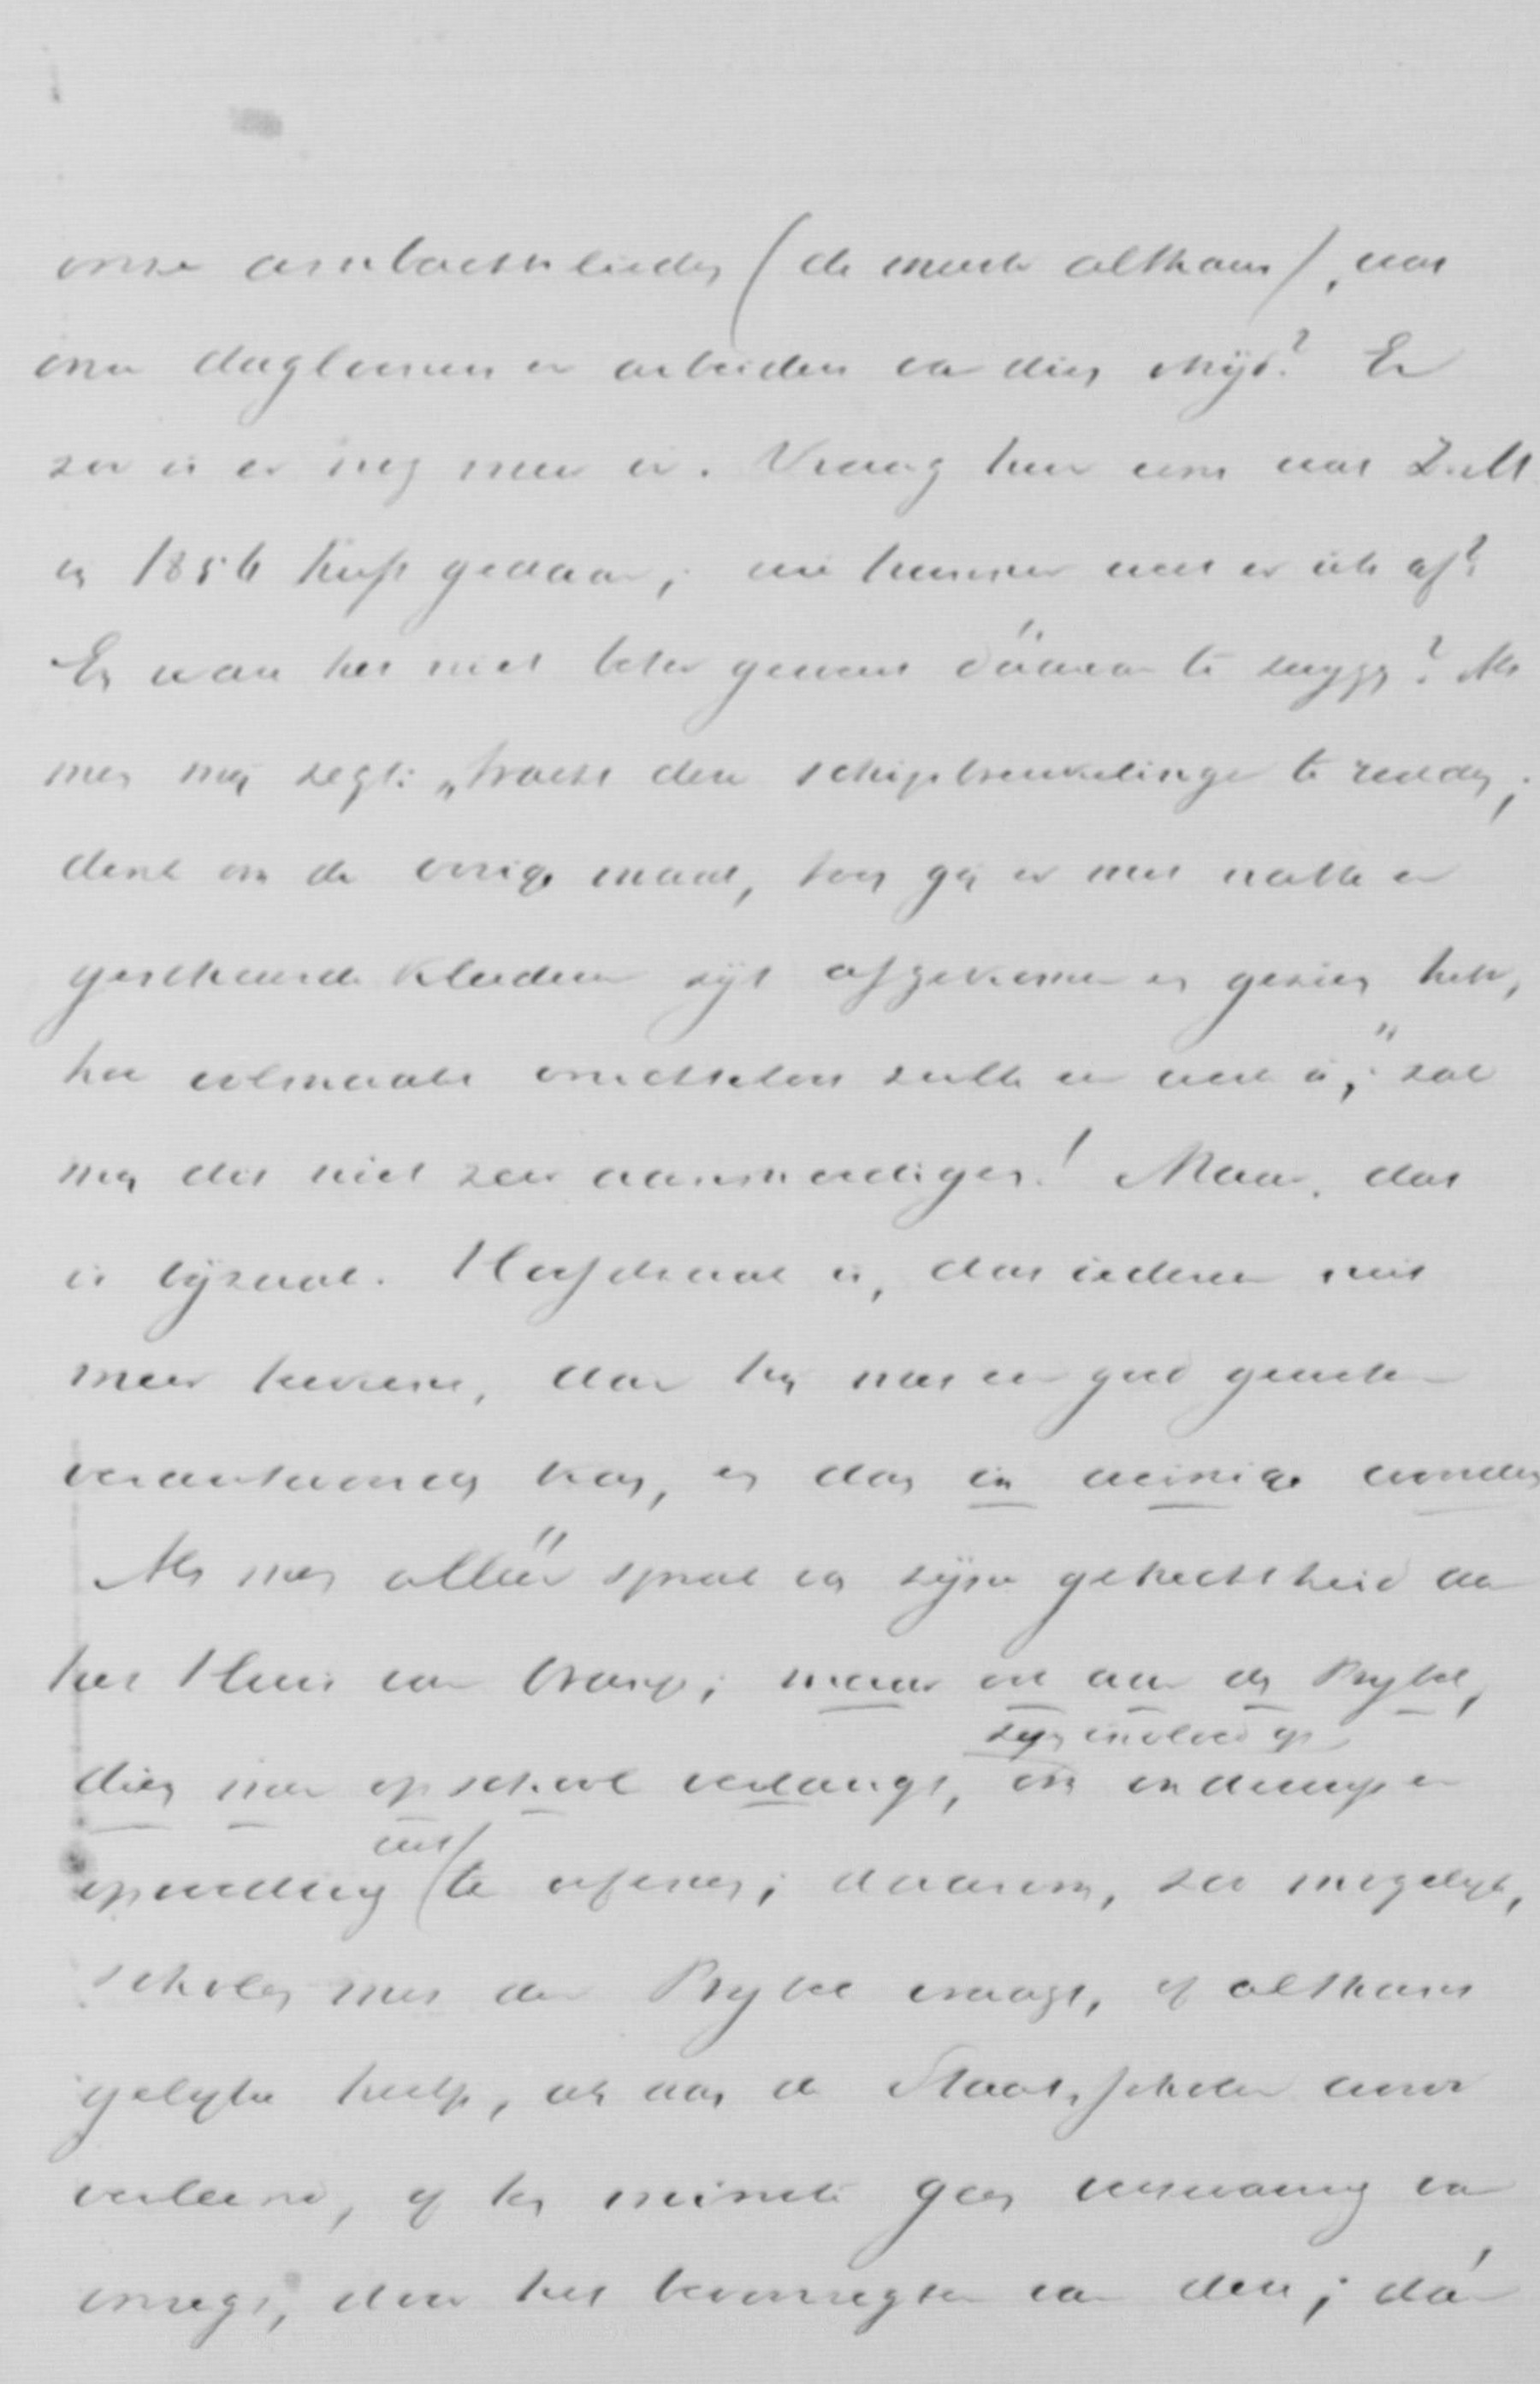 onze ambachtslieden (de meeste althans), van
onze dagloners en arbeiders van dien strijd? En
zoo is er nog meer in. Vraag hun eens wat Zulk
en 1856 heeft gedaan; wie kunnen er af?
En waar het niet beter geweest dááraan te zeggen? Als
men mij zegt: „tracht den schipbreukelingen te redden;
denk om de vorige maal, toen gij er met natte en
gescheurde kleederen zijt afgekomen en gezien hebt,
hoe volmaakt onredbaar zulk een is;" zal
mij dit niet zeer aanmoedigen! Maar, dat
is bijzaak. Hoofdzaak is, dat iedereen niet
meer beweere, dan hij met een goed geweten
verantwoorden kan, en dan in weinige woorden
Als men alléén sprak van zijne gehechtheid aan
het Huis van Oranje; maar ook aan den Bijbel,
dien men op school verlangt, om
zijn invloed op
onderwijs en
opvoeding uit te oefenen; daarom, zoo mogelijk,
scholen met den Bijbel vraagt, of althans
gelijke hulp, als aan de Staatsscholen wordt
verleend, of ten minste geen van
onregt, door het bevoorregten van deze; dán